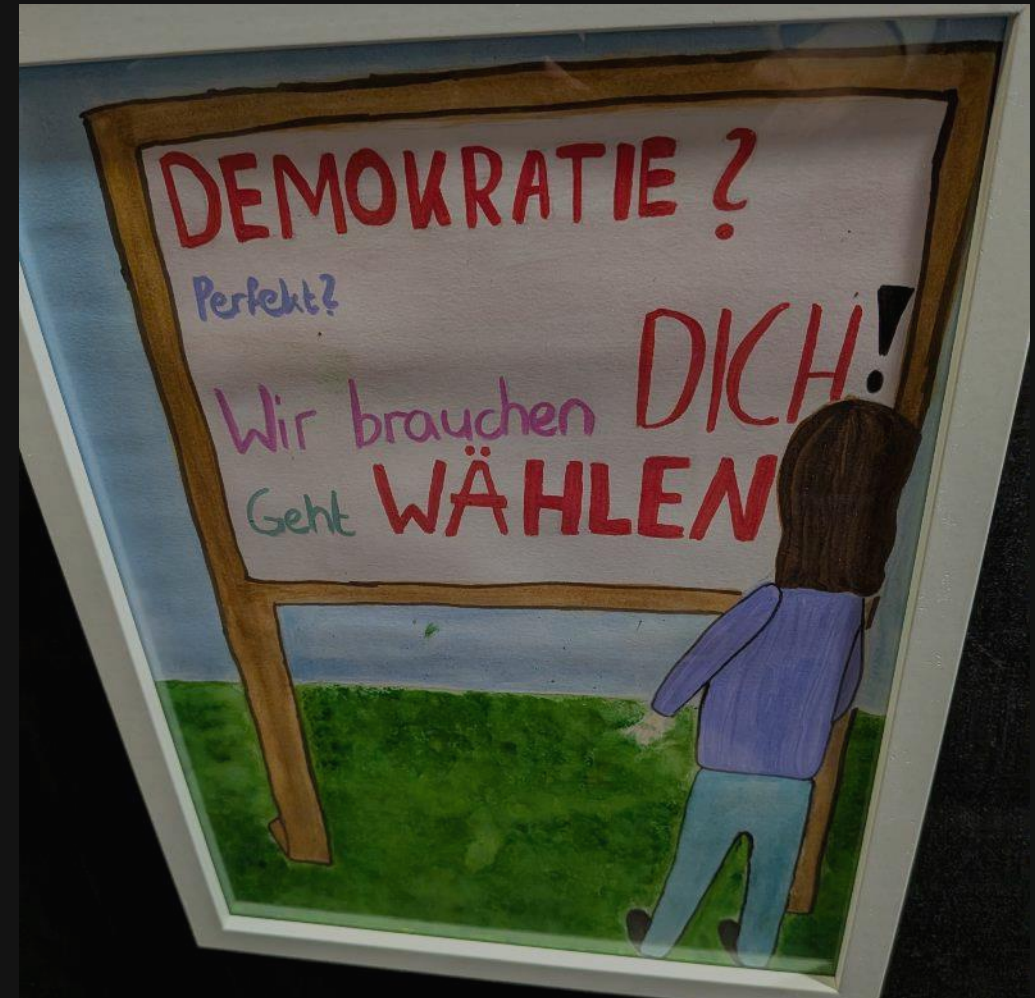 DEMOKRATIE?
Perfekt?
Wir brauchen DICH!
Geht WÄHLEN